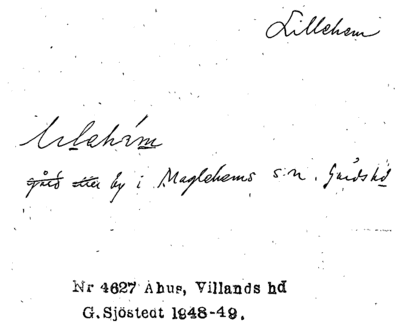 Lillehem
by i Maglehems sn. Gärds hd
Nr 4627 Åhus, Villands hd
G. Sjöstedt 1948-49.